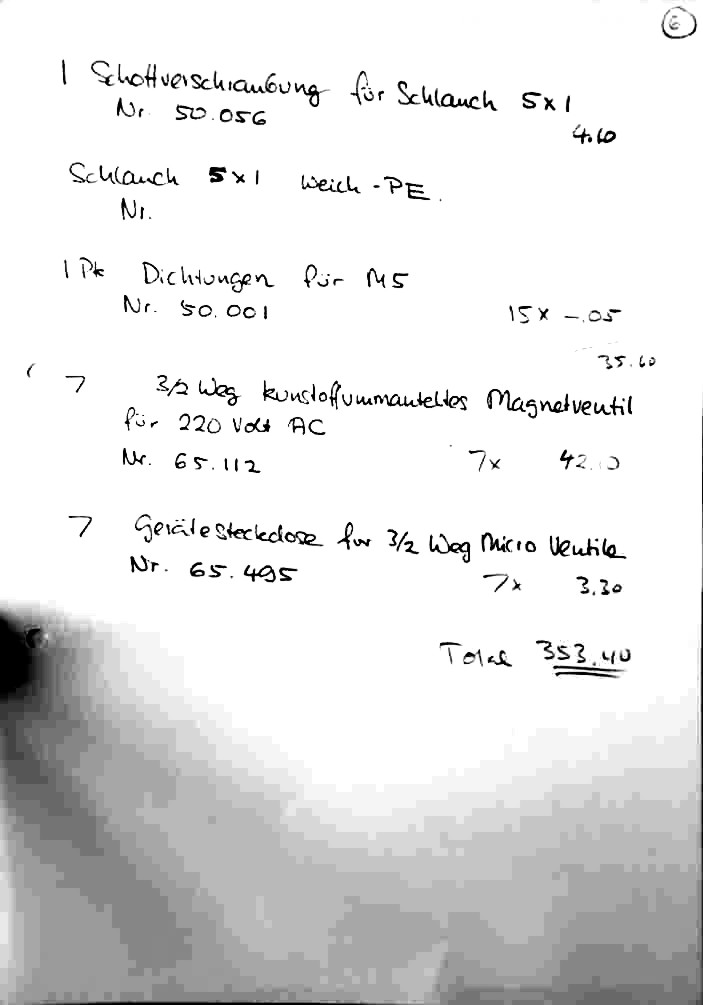 6
1 Schottverschraubung für Schlauch 5x1
Nr. 50.056
4.60
Schlauch 5x1 Weich-PE.
Nr.
1 Pk Dichtungen für M5
Nr. 50.001 15x -.05
35.60
7 3/2 Weg kunstoffummanteltes Magnetventil
für 220 Volt AC
Nr. 65.112 7x
7 Gerätesteckdose für 3/2 Weg Micro Ventile
Nr. 65.495 7x 3.30
Total 353.40